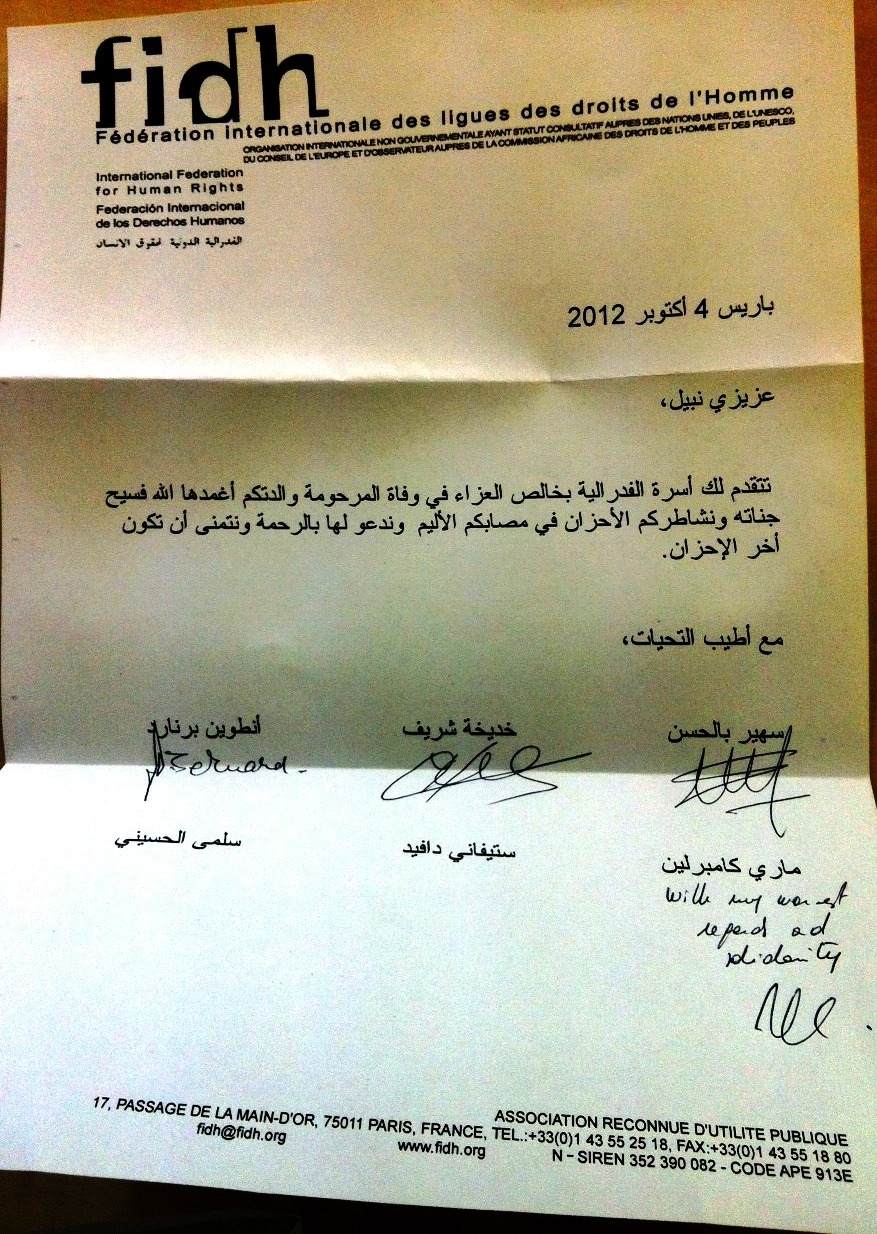 fidh
Fédération internationale des ligues des droits de l'Homme
ORGANISATION INTERNATIONALE NON GOUVERNEMENTALE AYANT STATUT CONSULTATIF AUPRES DES NATIONS UNIES, DE L'UNESCO,
DU CONSEIL DE L'EUROPE ET D'OBSERVATEUR AUPRES DE LA COMMISSION AFRICAINE DES DROITS DE L'HOMME ET DES PEUPLES
International Federation
for Human Rights
Federación Internacional
de los Derechos Humanos
الفدرالية الدولية لحقوق الانسان
باريس 4 أكتوبر 2012
عزيزي نبيل،
تتقدم لك أسرة الفدرالية بخالص العزاء في وفاة المرحومة والدتكم أغمدها الله فسيح
جناته ونشاطركم الأحزان في مصابكم الأليم وندعو لها بالرحمة ونتمنى أن تكون
أخر الإحزان.
مع أطيب التحيات،
سهير بالحسن خديخة شريف أنطوين برنارد
Bernard
ماري كامبرلين ستيفاني دافيد سلمى الحسيني
With my
regards ad
solidarity
ASSOCIATION RECONNUE D'UTILITE PUBLIQUE
17, PASSAGE DE LA MAIN-D'OR, 75011 PARIS, FRANCE, TEL.:+33(0)1 43 55 25 18, FAX:+33(0)1 43 55 18 80
fidh@fidh.org www.fidh.org N - SIREN 352 390 082 - CODE APE 913E